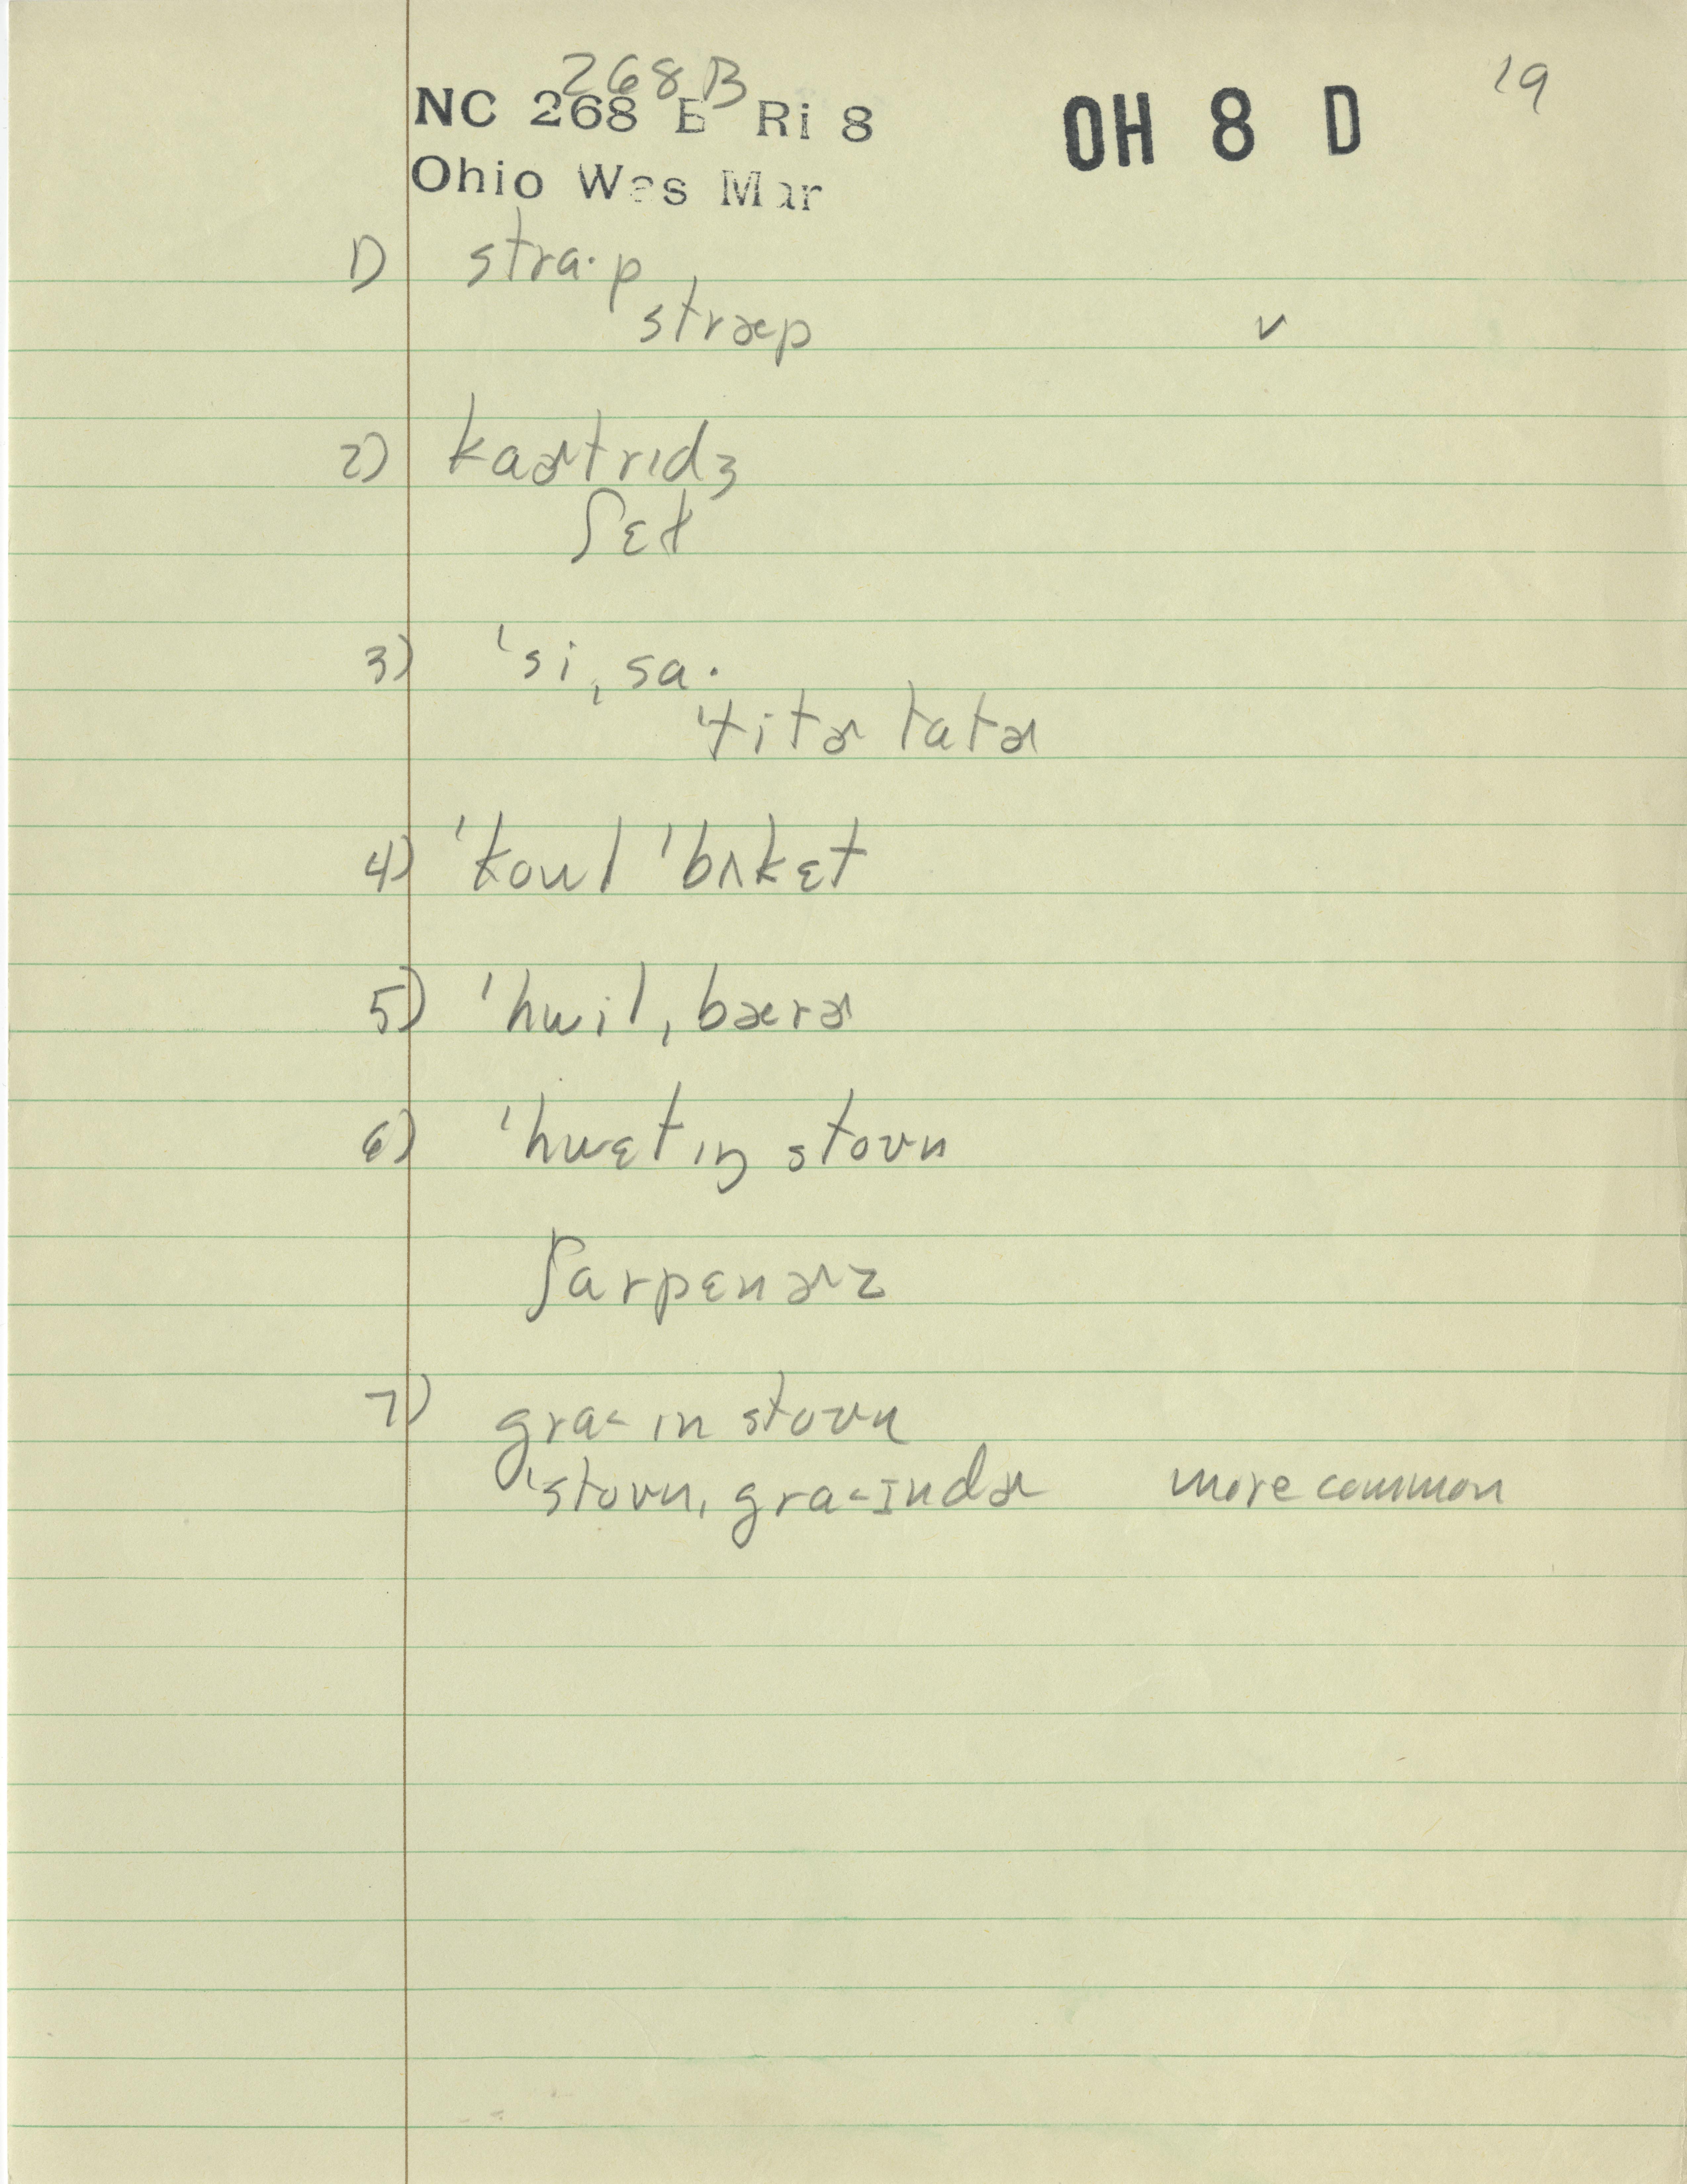 268 B
NC 268 B Ri 8 OH 8 D 19
Ohio Wes Mar
1) stra·p
stræp v
2) kaɚtrɪdʒ
ʃɛt
3) ˈsi ˌsa·
ˈtitɚ tatɚ
4) ˈkoul ˈbʌkɛt
5) ˈhwil ˌbærɚ
6) ˈhwɛtɪŋ stoun
ʃarpɛnɚz
7) gra˂ ɪn stoun
ˈstoun ˌgra˂ɪndɚ more common